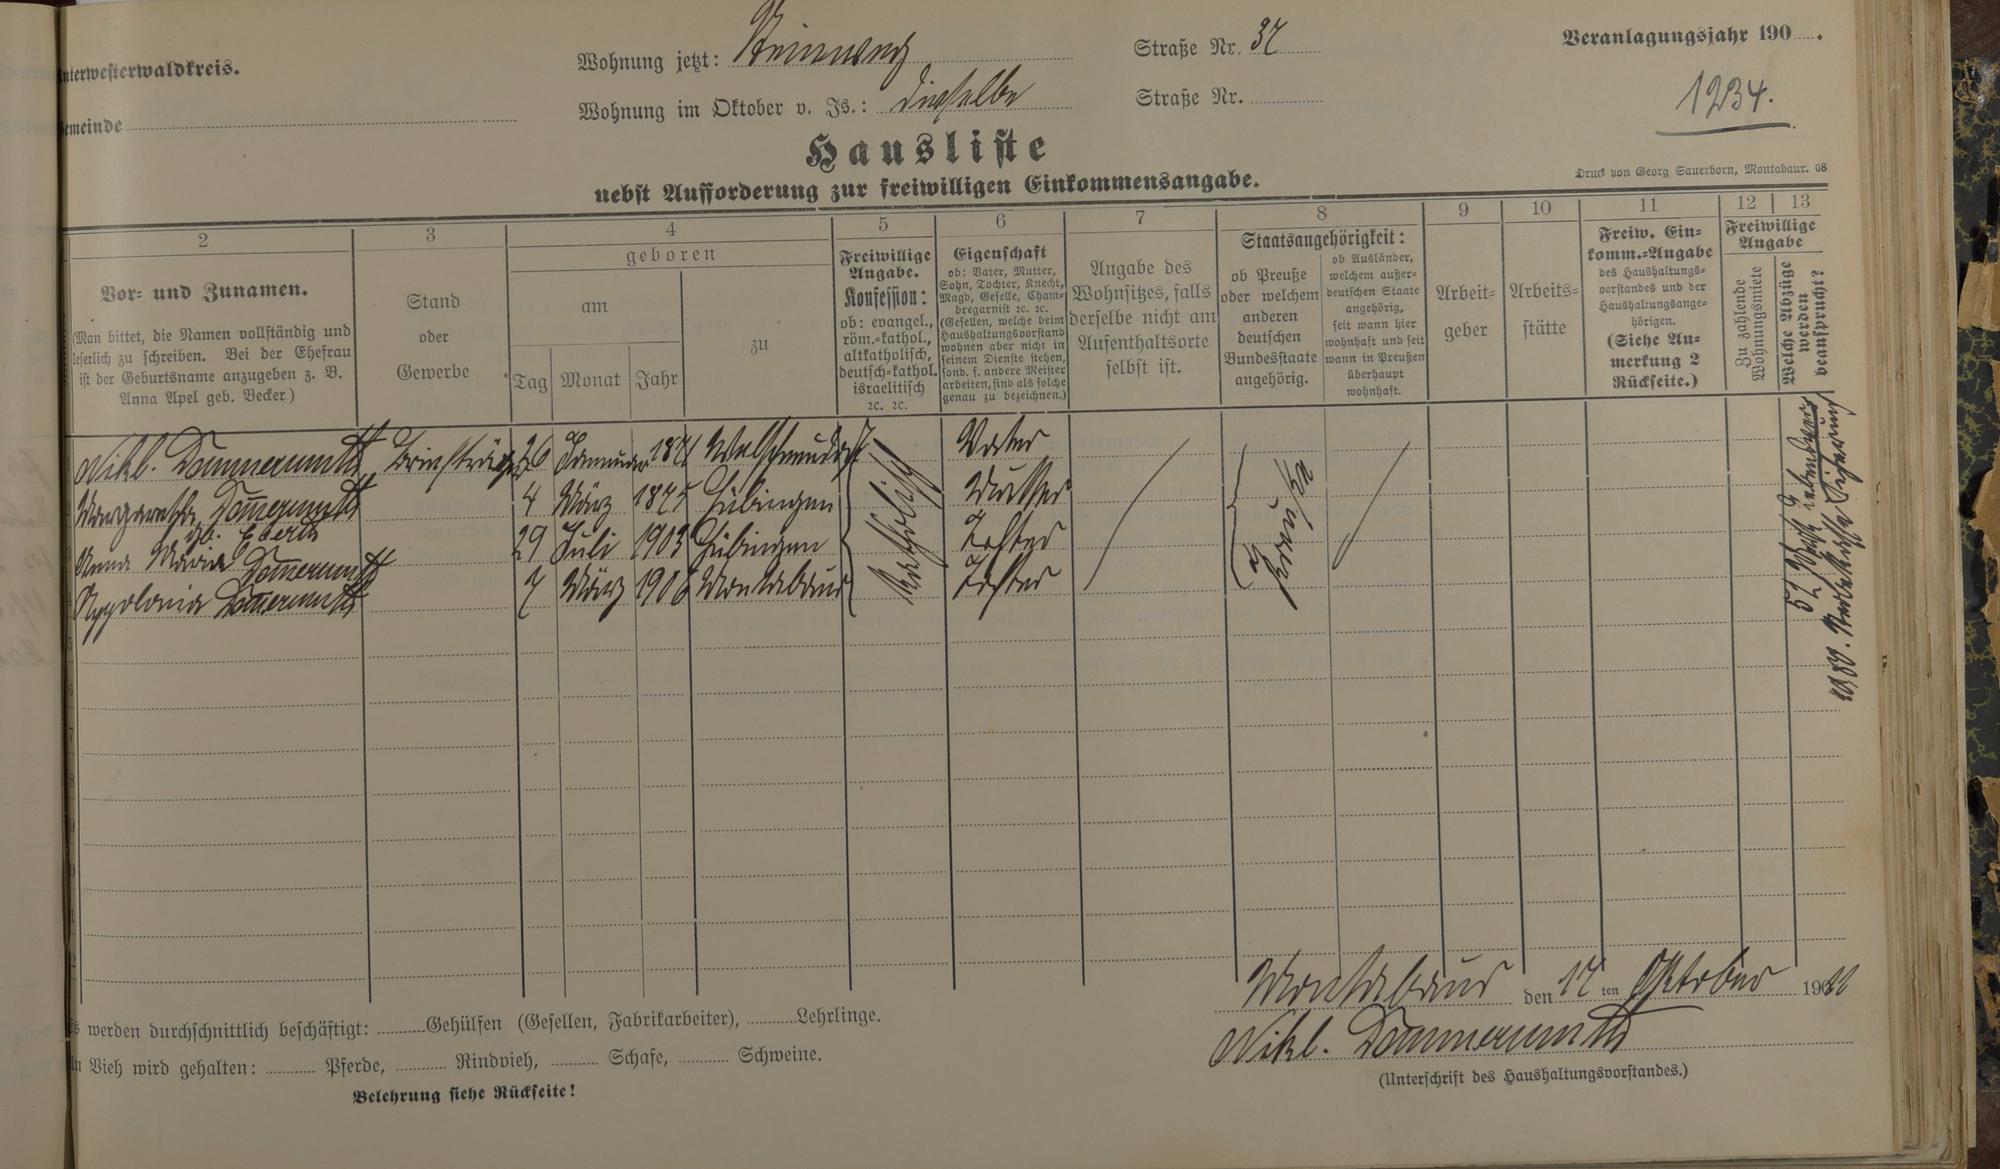 Unterwesterwaldkreis.
Wohnung jetzt: Steinweg Straße Nr. 37
Veranlagungsjahr 190 .
Gemeinde
Wohnung im Oktober v. Js.: dieselbe Straße Nr.
1234.
Hausliste
nebst Aufforderung zur freiwilligen Einkommensangabe.
Druck von Georg Sauerborn, Montabaur. 08
2
Vor- und Zunamen.
(Man bittet, die Namen vollständig und
leserlich zu schreiben. Bei der Ehefrau
ist der Geburtsname anzugeben z. B.
Anna Apel geb. Becker.)
3
Stand
oder
Gewerbe
4
geboren
am
zu
Tag Monat Jahr
5
Freiwillige
Angabe.
Konfession:
ob: evangel.,
röm.-kathol.,
altkatholisch,
deutsch-kathol.
israelitisch
ꝛc. ꝛc.
6
Eigenschaft
ob: Vater, Mutter,
Sohn, Tochter, Knecht,
Magd, Geselle, Cham-
bregarnist ꝛc. ꝛc.
(Gesellen, welche beim
Haushaltungsvorstand
wohnen aber nicht in
seinem Dienste stehen,
sond. f. andere Meister
arbeiten, sind als solche
genau zu bezeichnen.)
7
Angabe des
Wohnsitzes, falls
derselbe nicht am
Aufenthaltsorte
selbst ist.
8
Staatsangehörigkeit:
ob Preuße
oder welchem
anderen
deutschen
Bundesstaate
angehörig.
ob Ausländer,
welchem außer-
deutschen Staate
angehörig,
seit wann hier
wohnhaft und seit
wann in Preußen
überhaupt
wohnhaft.
9
Arbeit-
geber
10
Arbeits-
stätte
11
Freiw. Ein-
komm.-Angabe
des Haushaltungs-
vorstandes und der
Haushaltungsange-
hörigen.
(Siehe An-
merkung 2
Rückseite.)
12 13
Freiwillige
Angabe
Zu zahlende
Wohnungsmiete
Welche Abzüge
werden
beansprucht?
Nikl. Dommermuth Briefträger 26 Januar 1871 Vater
Margaretha Dom̅ermuth 4 März 1875 Hübingen Mutter
gb. Eberth
Anna Maria Dom̅ermuth 29 Juli 1903 Hübingen Tochter
Appolonia Dom̅ermuth 7 März 1906 Montabaur Tochter
Katholisch
Preuße
5
6
7
8
9
Montabaur den 17 ten Oktober 1911
Nikl. Dommermuth
(Unterschrift des Haushaltungsvorstandes.)
Es werden durchschnittlich beschäftigt: Gehülfen (Gesellen, Fabrikarbeiter), Lehrlinge.
An Vieh wird gehalten: Pferde, Rindvieh, Schafe, Schweine.
Belehrung siehe Rückseite!